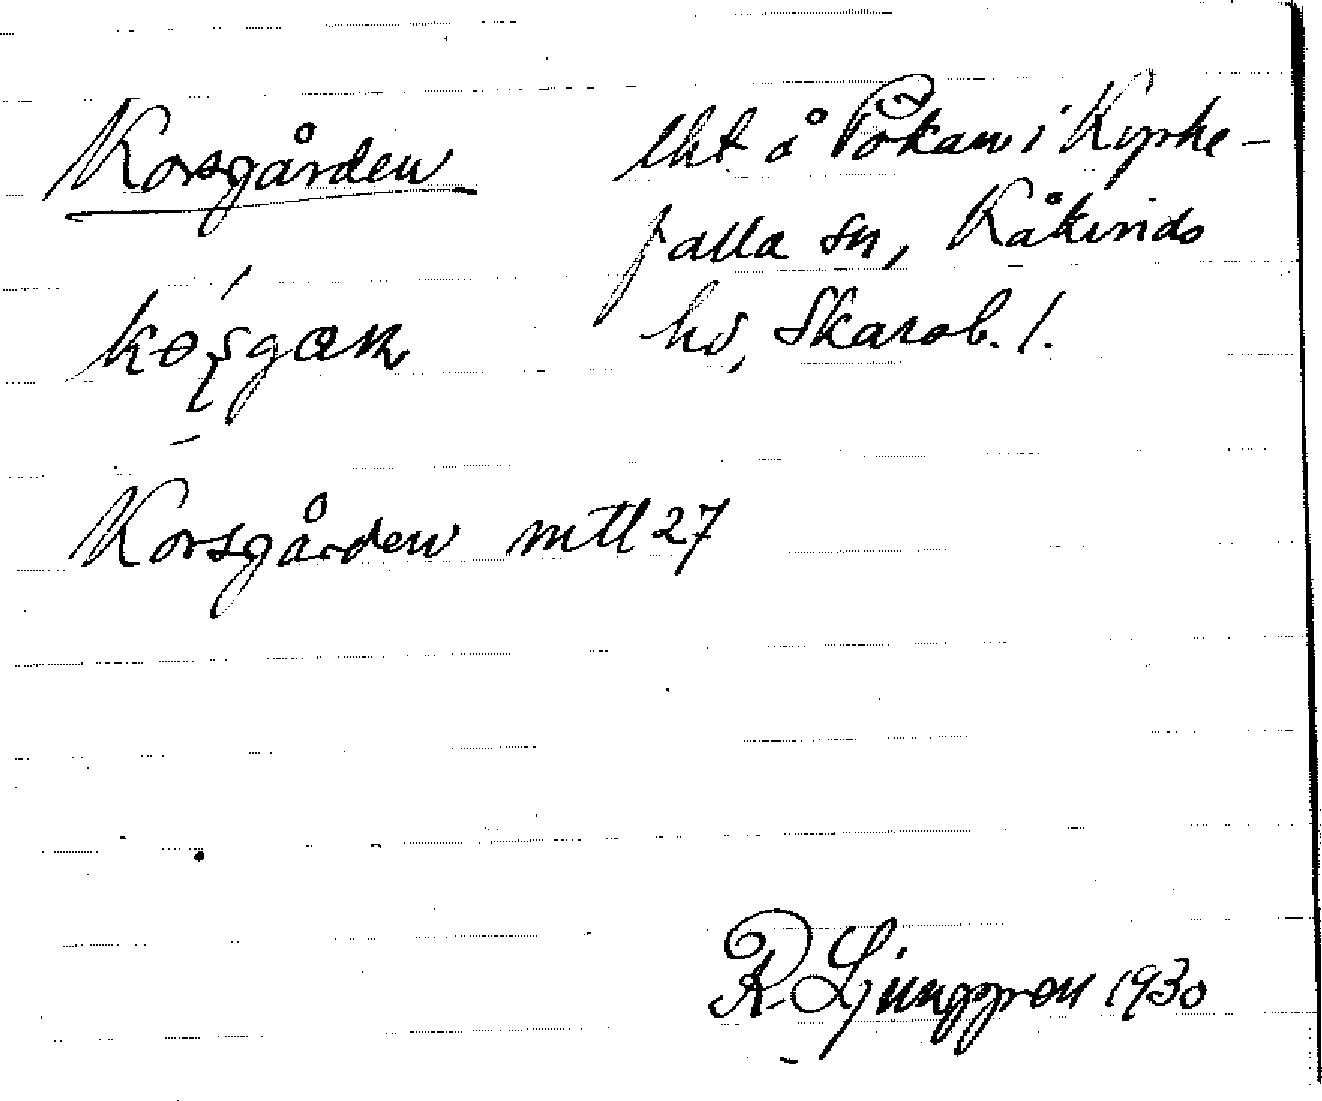 Korsgården lht å Påkan i Kyrke-
falla sn, Kåkinds
hd, Skarab. l.
Korsgården mtl 27
R. Ljunggren 1930